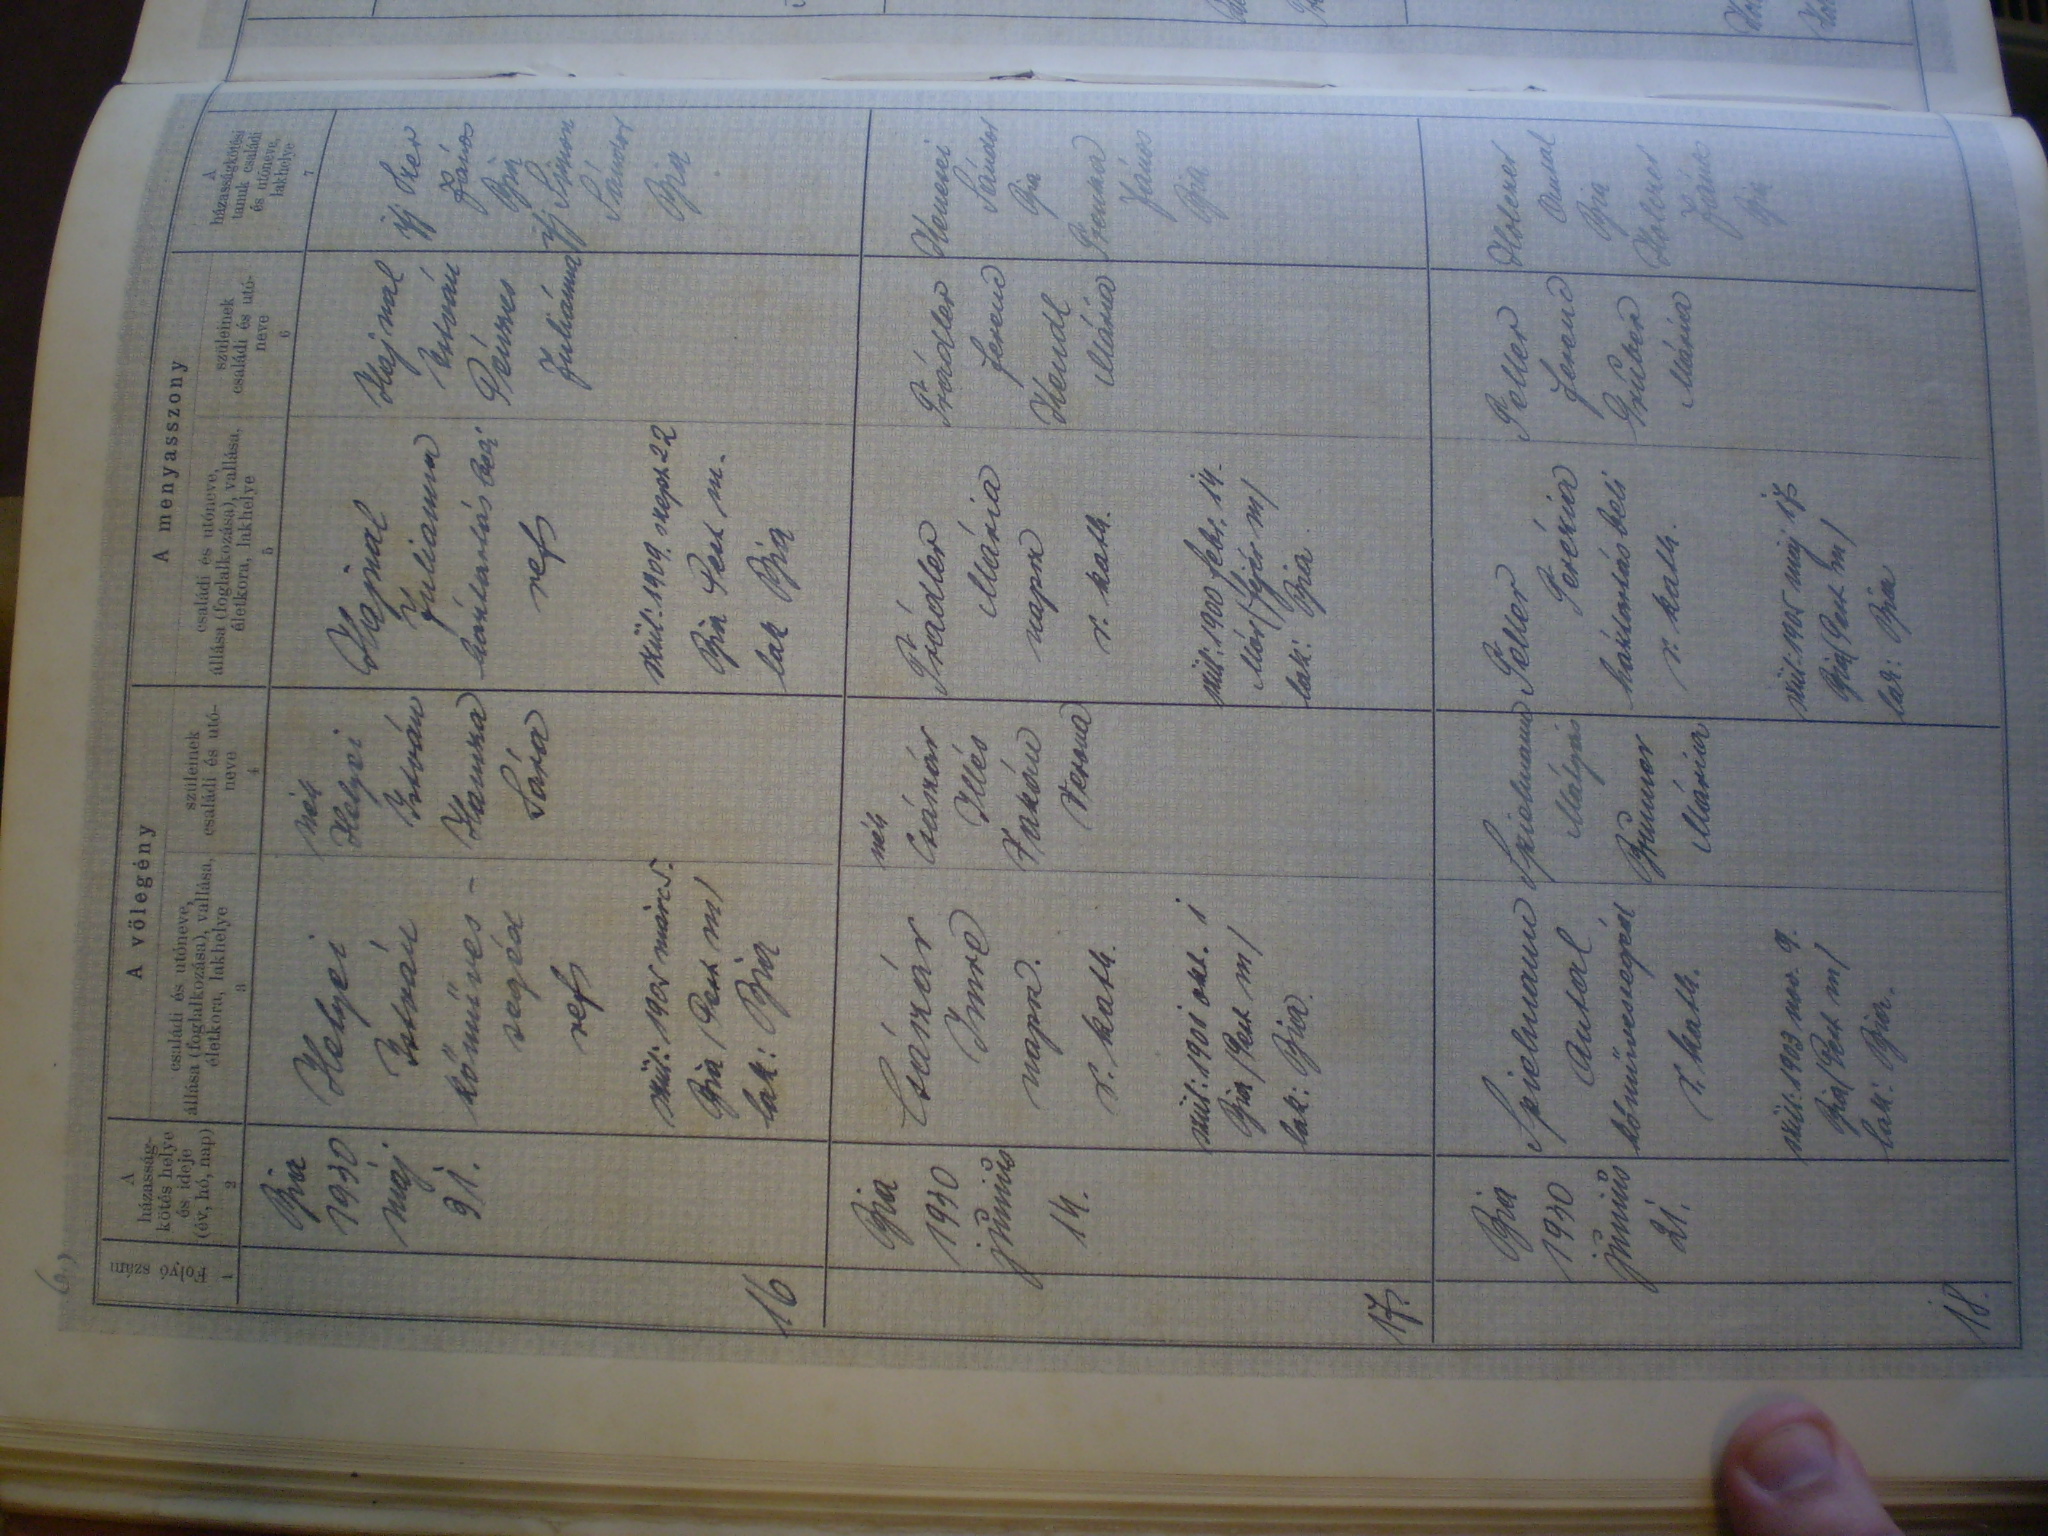 A völegény
A menyasszony
Folyó szám
A
házasság-
kötés helye
és ideje
(év, hó, nap)
családi és utóneve,
állása (foglalkozása), vallása,
életkora, lakhelye
szüleinek
családi és utó-
neve
családi és utóneve,
állása (foglalkozása), vallása,
életkora, lakhelye
szüleinek
családi és utó-
neve
A
házasságkötési
tanuk családi
és utóneve,
lakhelye
1
2
3
4
5
6
7
16
Bia
1930
máj
31.
Helyei
István
kőműves-
segéd
ref
szül: 1905 márc 5.
Bia /Pest m/
lak: Bia
néh
Helyei
István
Hanzsa
Sára
Hajnal
Julianna
háztartásbeli
ref
szül: 1909. szept 22
Bia Pest m.
lak Bia
Hajnal
István
Pénzes
Juliánna
ifj
János
Bia
ifj Simon
Sándor
Bia
17.
Bia
1930
június
14.
Császár
Imre
naps.
r. kath.
szül: 1901 okt. 1
Bia /Pest m/
lak: Bia.
néh
Császár
Illés
Verona
Prádler
Mária
naps
r. kath.
szül: 1900 febr. 14.
Mór /Fejér m/
lak: Bia.
Prádler
Ferenc
Hendl
Mária
Sándor
Bia
János
Bia
18.
Bia
1930
június
21.
Spielmann
Antal
kőművessegéd
r. kath.
szül: 1903 nov. 9.
Bia /Pest m/
lak: Bia.
Spielmann
Mátyás
Brunner
Mária
Peller
Terézia
háztartásbeli
r. kath.
szül: 1905 máj. 17
Bia /Pest m/
lak: Bia
Peller
Ferenc
Gruber
Mária
Antal
Bia
Bia